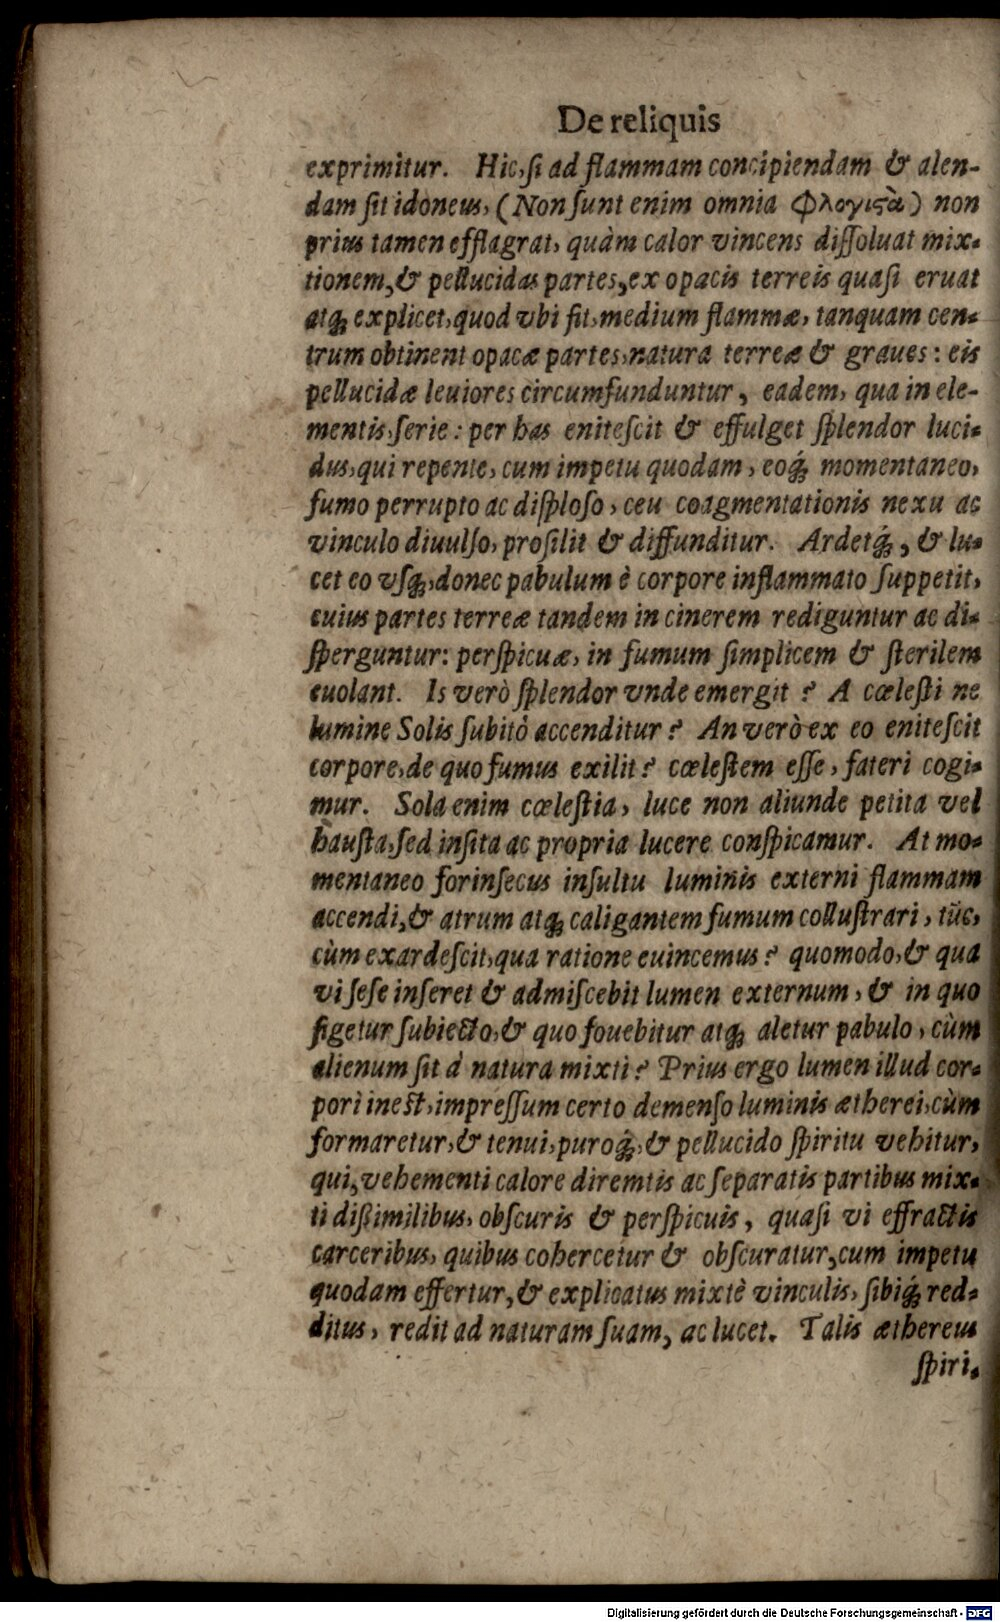 De reliquis
exprimitur. Hic, ſi ad flammam concipiendam & alen-
dam ſit idoneus, (Non ſunt enim omnia φλογιςὰ) non
prius tamen efflagrat, quàm calor vincens diſſoluat mix-
tionem, & pellucidas partes, ex opacis terreis quaſi eruat
atq́; explicet, quod vbi fit, medium flammæ, tanquam cen-
trum obtinent opacæ partes, natura terreæ & graues: eis
pellucidæ leuiores circumfunduntur, eadem, qua in ele-
mentis, ſerie: per has eniteſcit & effulget ſplendor luci-
dus, qui repente, cum impetu quodam, eoq́; momentaneo,
fumo perrupto ac diſploſo, ceu coagmentationis nexu ac
vinculo diuulſo, proſilit & diffunditur. Ardetq́;, & lu-
cet eo vſq;, donec pabulum è corpore inflammato ſuppetit,
cuius partes terreæ tandem in cinerem rediguntur ac di-
ſperguntur: perſpicuæ, in fumum ſimplicem & ſterilem
euolant. Is verò ſplendor vnde emergit? A cœleſti ne
lumine Solis ſubitò accenditur? An verò ex eo eniteſcit
corpore, de quo fumus exilit? cœleſtem eſſe, fateri cogi-
mur. Sola enim cœleſtia, luce non aliunde petita vel
hauſta, ſed inſita ac propria lucere conſpicamur. At mo-
mentaneo forinſecus inſultu luminis externi flammam
accendi, & atrum atq; caligantem fumum colluſtrari, tūc,
cùm exardeſcit, qua ratione euincemus? quomodo, & qua
vi ſeſe inſeret & admiſcebit lumen externum, & in quo
figetur ſubiecto, & quo fouebitur atq; aletur pabulo, cùm
alienum ſit à natura mixti? Prius ergo lumen illud cor-
pori ineſt, impreſſum certo demenſo luminis ætherei, cùm
formaretur, & tenui, puroq́;, & pellucido ſpiritu vehitur,
qui, vehementi calore diremtis ac ſeparatis partibus mix-
ti diſsimilibus, obſcuris & perſpicuis, quaſi vi effractis
carceribus, quibus cohercetur & obſcuratur, cum impetu
quodam effertur, & explicatus mixtè vinculis, ſibiq́; red-
ditus, redit ad naturam ſuam, ac lucet. Talis æthereus
ſpiri-
Digitalisierung gefördert durch die Deutsche Forschungsgemeinschaft - DFG